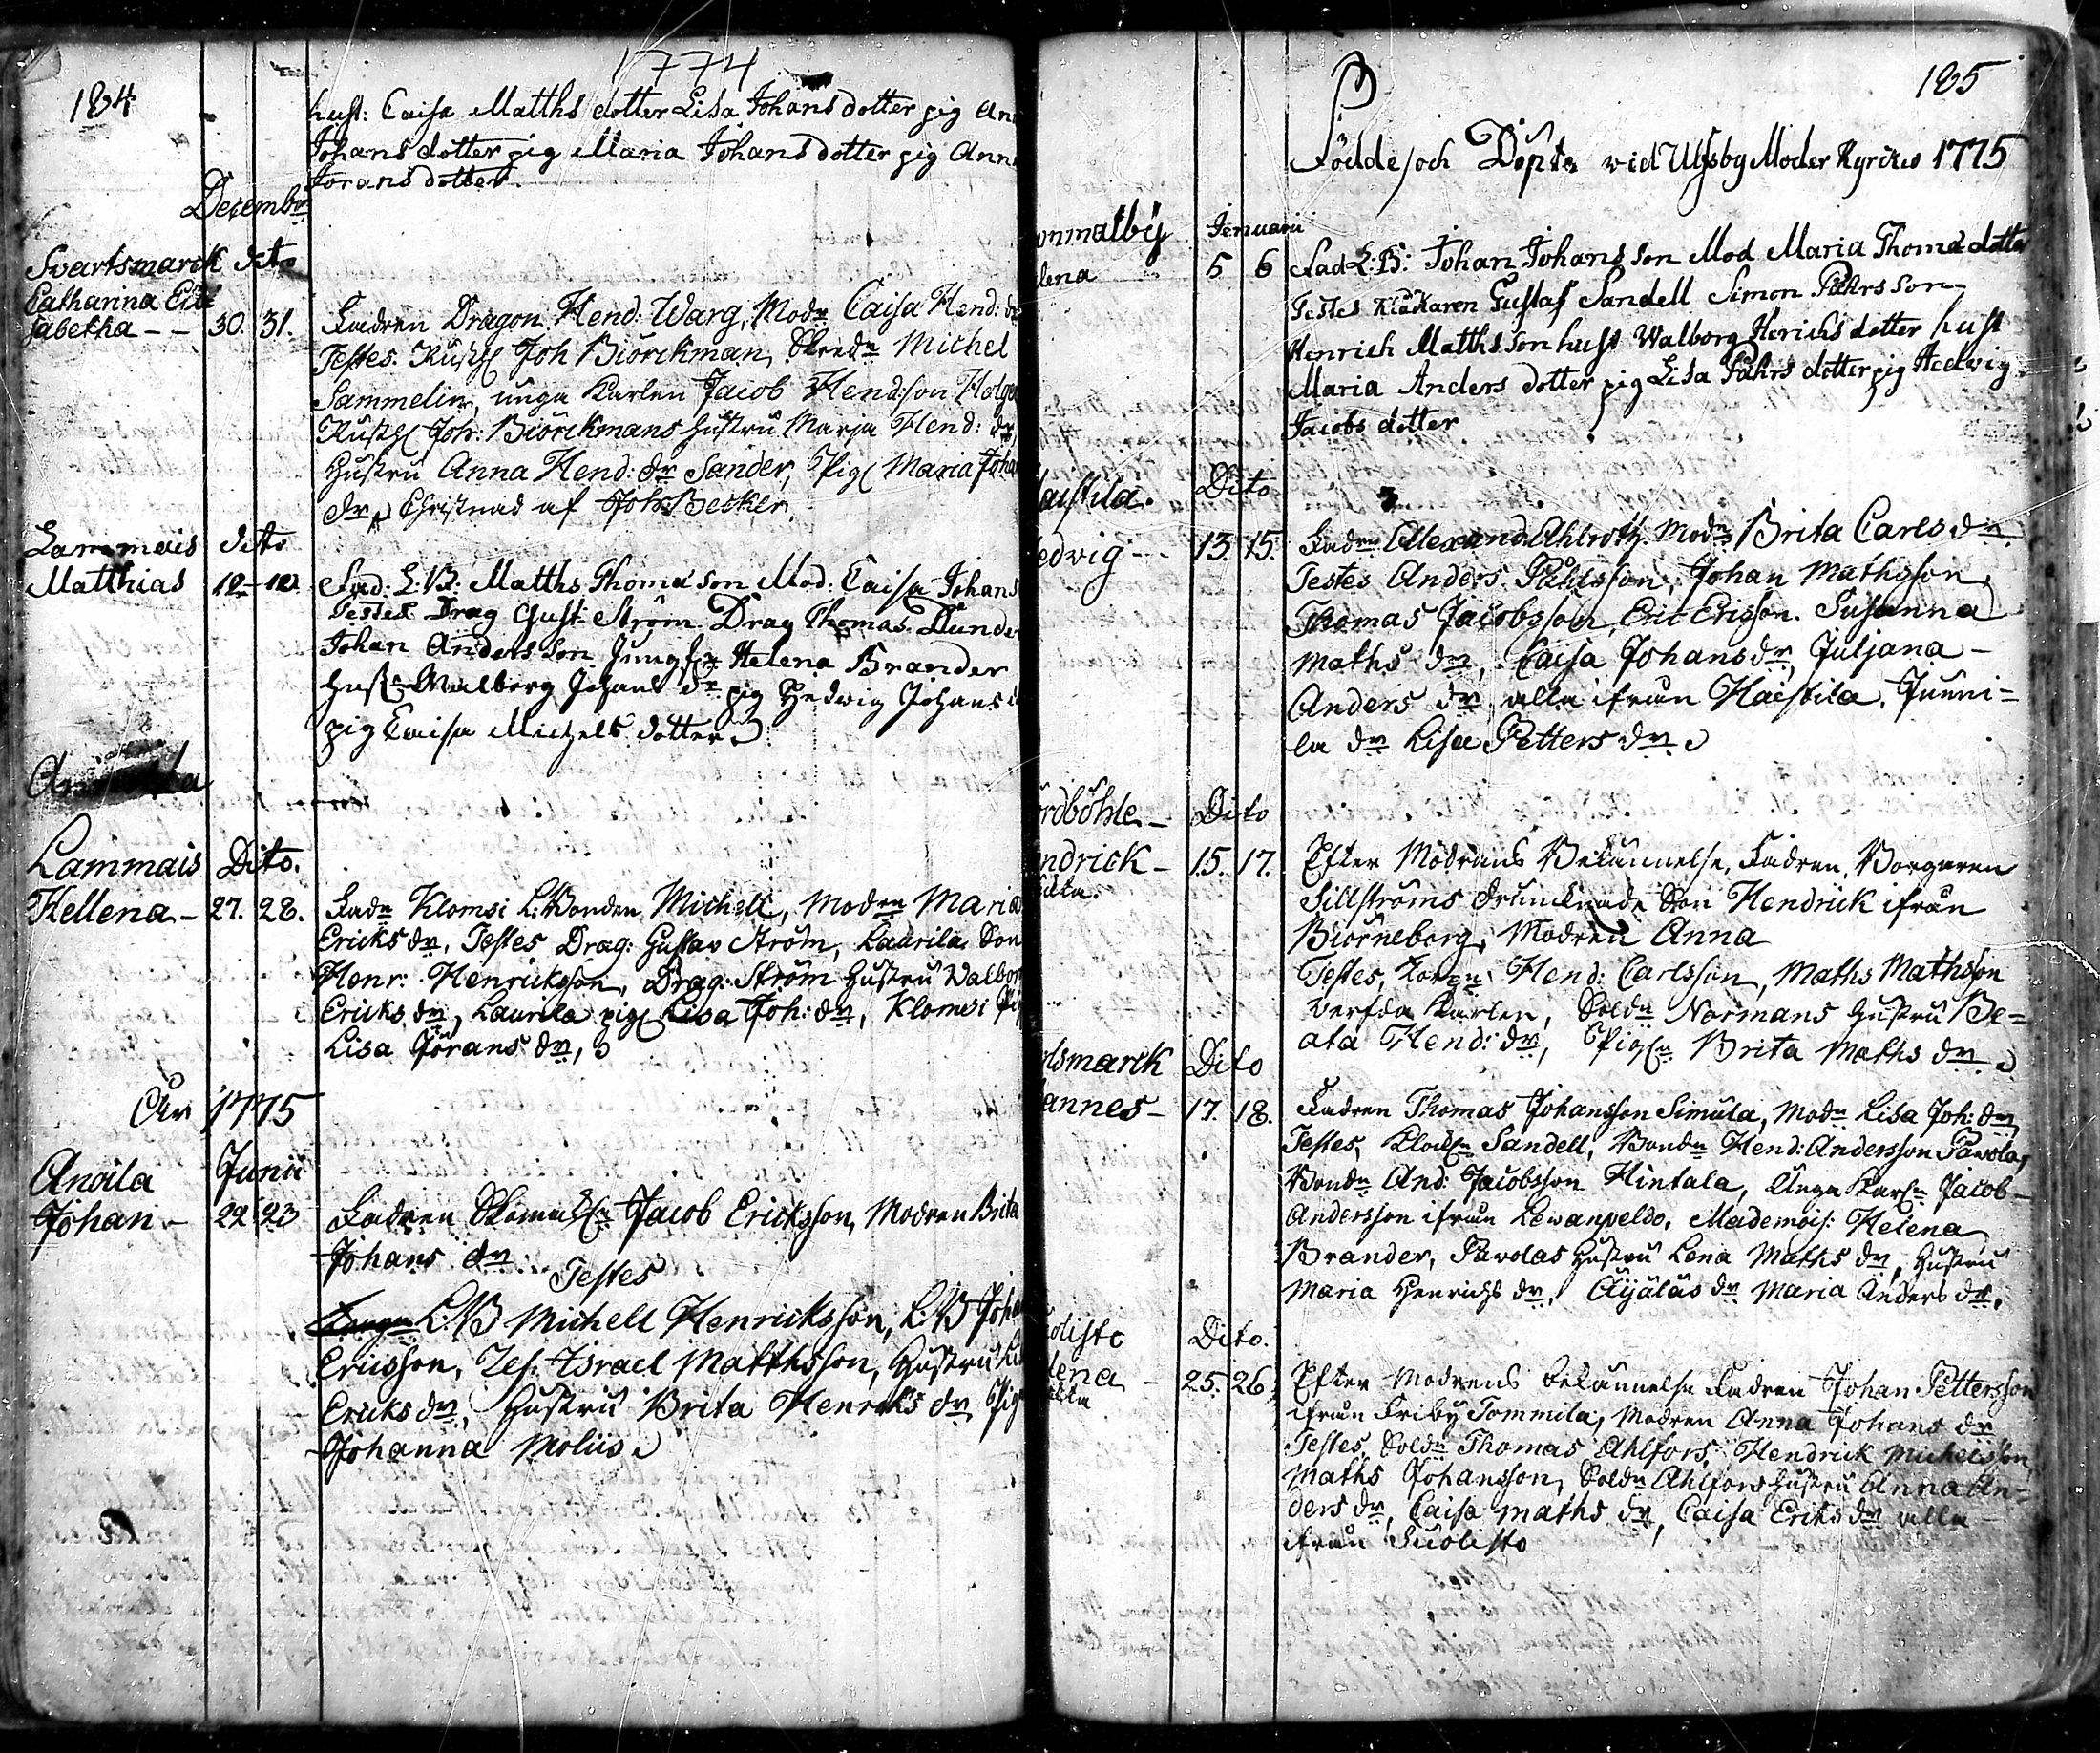 1774
184
hust: Caisa Matths dotter Lisa Johans dotter pig Ann
Johans dotter pig Maria Johans dotter pig Anna
Jorans dotter.
Decembr
Svartsmarck dito
Catharina Eli
sabetha - - 30. 31. Fadren Dragon Hend: Warg, Modn Caisa Hend: dr
Testes. Joh Biörckman, Michel
Sammelin, unga Karlen Jacob Hend:son
Joh: Biörckmans Hustru Marja Hend: dr,
Hustru Anna Hend: dr Sander, Pig Maria Joha
dr, Christnad af Joh: Becker.
Lammais dito
Matthias 12 - 12 Fad: L: B: Matths Thomæ son Mod: Caisa Johans
Testes Drag Gust: Ström Drag Thomas Dunder
Johan Anders son Jungfr Helena Brander
Hust Walborg Johans dr pig Hedwig Johans d
pig Caisa Michels dotter
Lammais Dito.
Hellena - 27. 28. Fadn Klomsi L: Bonden Michell, Modrn Maria
Ericks dr, Testes Drag: Gustav Ström, Laurila Son
Henr: Henricksson, Drag: Ström Hustru Walbor
Ericks dr, Laurila pig Lisa Joh: dr, Klomsi Pig
Lisa Jörans dr,
Ahr 1775
Anoila Junii
Johan - 22 23 Fadren Jacob Ericksson, Modren Brita
Johans dr. Testes
L:B Michell Henricksson, L:B Joha
Ericsson, Israel Matthsson, Hustru Li
Ericks dr, Hustru Brita Henricks dr, Pig
Johanna Moliis
185
Födde och Döpte vid Ulfsby Moder Kyrka 1775
onmalby Januarii
lena 5 6 Fad L: B: Johan Johans son Mod Maria Thomæ dotter
Testes Klåkaren Gustaf Sandell Simon Påhrs son
Henrich Matths son hust Walborg Henrichs dotter hust
Maria Anders dotter pig Lisa Påhrs dotter pig Hedvig
Jacobs dotter
aistila. Dito
edvig - - 13. 15. Fadrn Alexand: Ahlroth. Modn Brita Carls dr
Testes Anders Påhlsson, Johan Mathsson,
Thomas Jacobsson, Eric Ericsson. Susanna
Maths dr, Caisa Johans dr, Juljana -
Anders dr alla ifrån Haistila. Junni=
la dr Lisa Petters dr
ordböhle - Dito
ndrick - 15. 17. Efter Modrens Bekännelse, Fadren, Borgaren
Sillströms Son Hendrick ifrån
Biörneborg, Modren Anna
Testes, Hend: Carlsson, Maths Mathsson
Karlen, Soldn Normans Hustru Be=
ata Hend: dr, Pign Brita Maths dr
rtsmarck Dito
annes - 17. 18. Fadren Thomas Johansson Simula, Modn Lisa Joh: dr,
Testes, Klockn Sandell, Bondn Hend: Andersson Pavola,
Bondn And: Jacobsson Hintala, Unga Karln Jacob
Andersson ifrån Lewanpeldo, Mademois: Helena
Brander, Pavolas Hustru Lena Maths dr, Hustru
Maria Henrichs dr, Äijäläs dr Maria Anders dr.
olisto Dito.
lena - 25. 26. Efter Modrens bekännelse Fadren Johan Pettersson
ifrån Friby Tommila, Modren Anna Johans dr
Testes, Soldn Thomas Ahlfors, Hendrick Michelsson
Maths Johansson, Soldn Ahlfors Hustru Anna An=
ders dr, Caisa Maths dr, Caisa Eriks dr alla
ifrån Suolisto